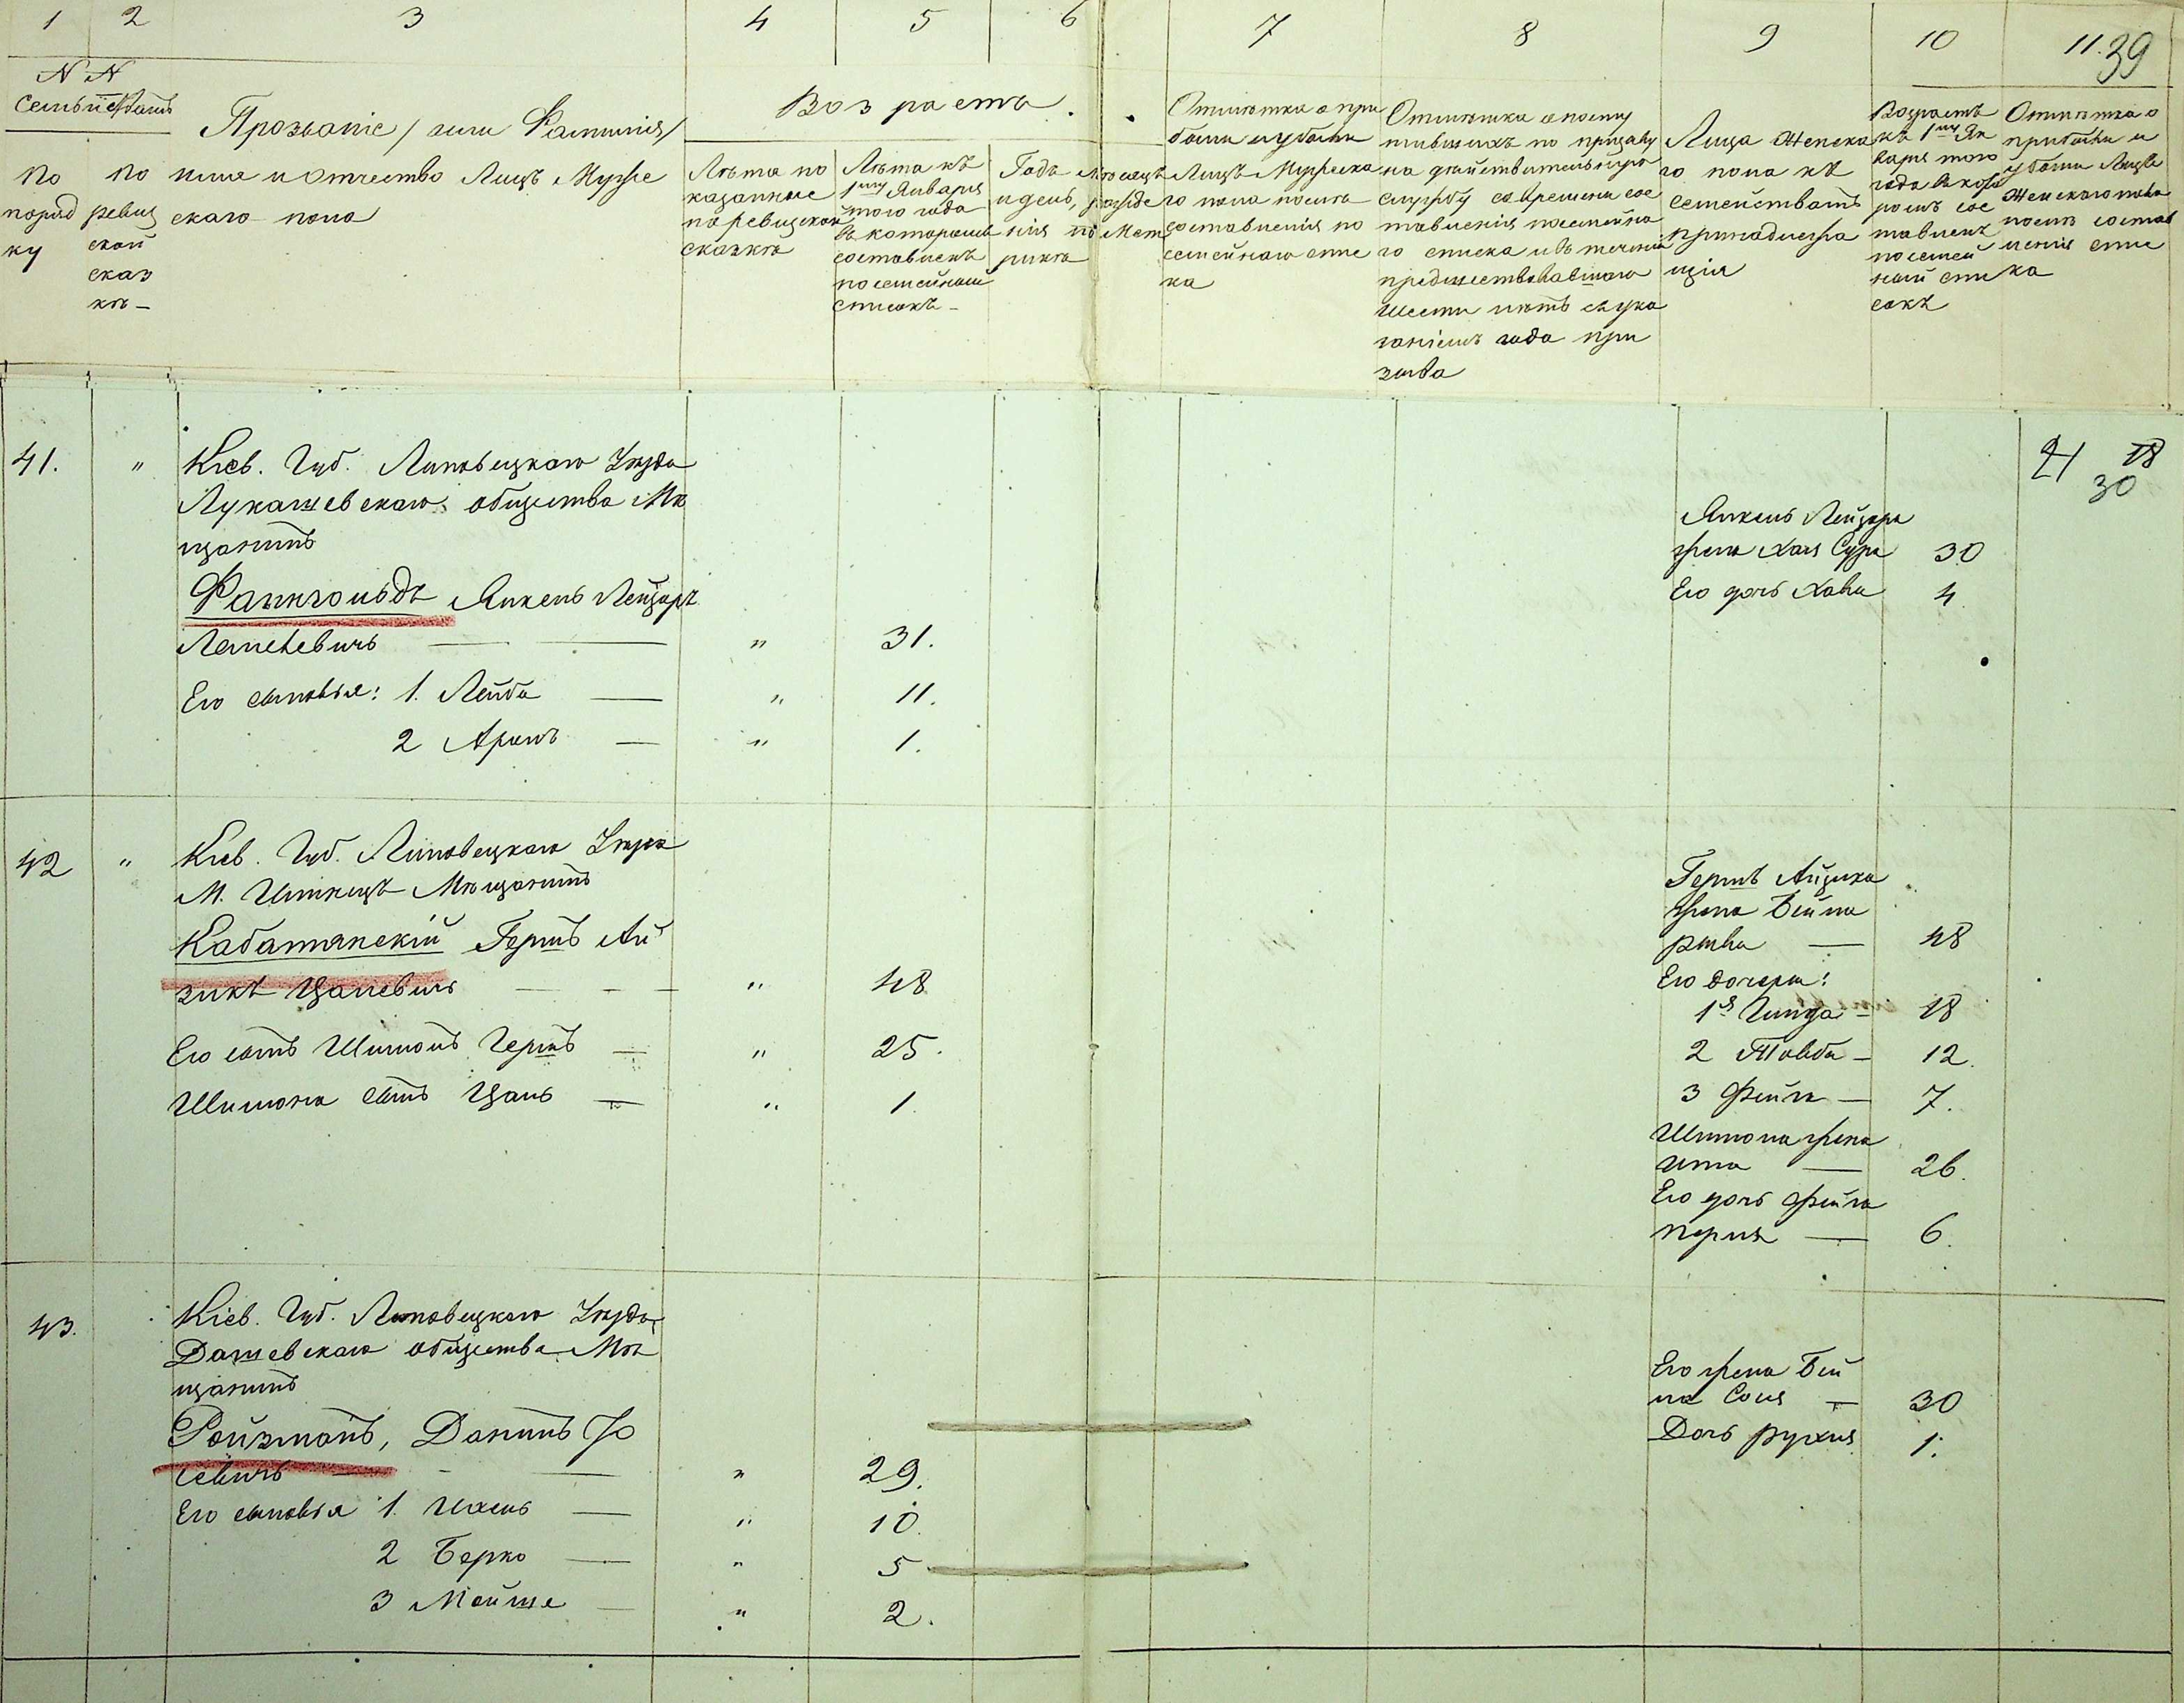 1 2 3 4 5 6 7 8 9 10 11. 39
N N
Семьи
Прозваніе / или Фамилія /
имя и отчество Лицъ Муже
скаго пола
По
поряд
ку
по
ревиз
ской
сказ
кѣ —
Возрастъ
Лѣта по
казанные
по ревизской
сказкѣ
Лѣта къ
1му Января
того года
въ которомъ
составленъ
посемейный
списокъ —
Годъ мѣсяцъ
и день, рожде
нія по Мет
рикѣ
Отмѣтка о при
были и убыли
Лицъ Мужска
го пола послѣ
составленія по
семейнаго спис
ка
Отмѣтка о посту
пившихъ по призыву
на дѣйствительную
службу со времени сос
тавленія посемейна
го списка и въ теченіи
предшествовавшаго
шести лѣтъ съ ука
заніемъ года при
зыва
Лица Женска
го пола къ
семействамъ
принадлежа
щія
Возрастъ
къ 1му Ян
варя того
года въ кото
ромъ сос
тавленъ
посемей
ный спи
сокъ
Отмѣтка о
прибыли и
убыли Лицъ
Женскаго пола
послѣ состав
ленія спис
ка
41. " Кіев. Губ. Липовецкаго Уѣзда
Лукашевскаго общества Мѣ
щанинъ
Файнгольдъ Янкель Лейзеръ
" 31.
Его сыновья: 1. Лейба — " 11.
2 Аронъ — " 1.
21 18
30
Янкель Лейзера
жена Хая Сура 30
Его дочь Хава 4
42 " Кіев. Губ. Липовецкаго Уѣзда
М. Ильинецъ Мѣщанинъ
Кабатянскій Гершъ Ай
зикъ Цалевичъ — " 48
Его сынъ Шимонъ Гершъ — " 25.
Шимона сынъ Цаль — " 1.
Гершъ Айзика
жена Бейла
рыва — 48
Его дочери:
1я — 18
2 Товба — 12.
3 Фейга — 7.
Шимона жена
Ита — 26.
Его дочь Фейга
Перля — 6.
43. Кіев. Губ. Липовецкаго Уѣзда
Дашевскаго общества Мѣ
щанинъ
Ройзманъ, Данилъ Іо
севичъ — " 29.
Его сыновья 1. Ихель — " 10.
2 Берко — " 5
3 Мойше — " 2.
Его жена Бей
ла Сося — 30
Дочь Рухля 1.